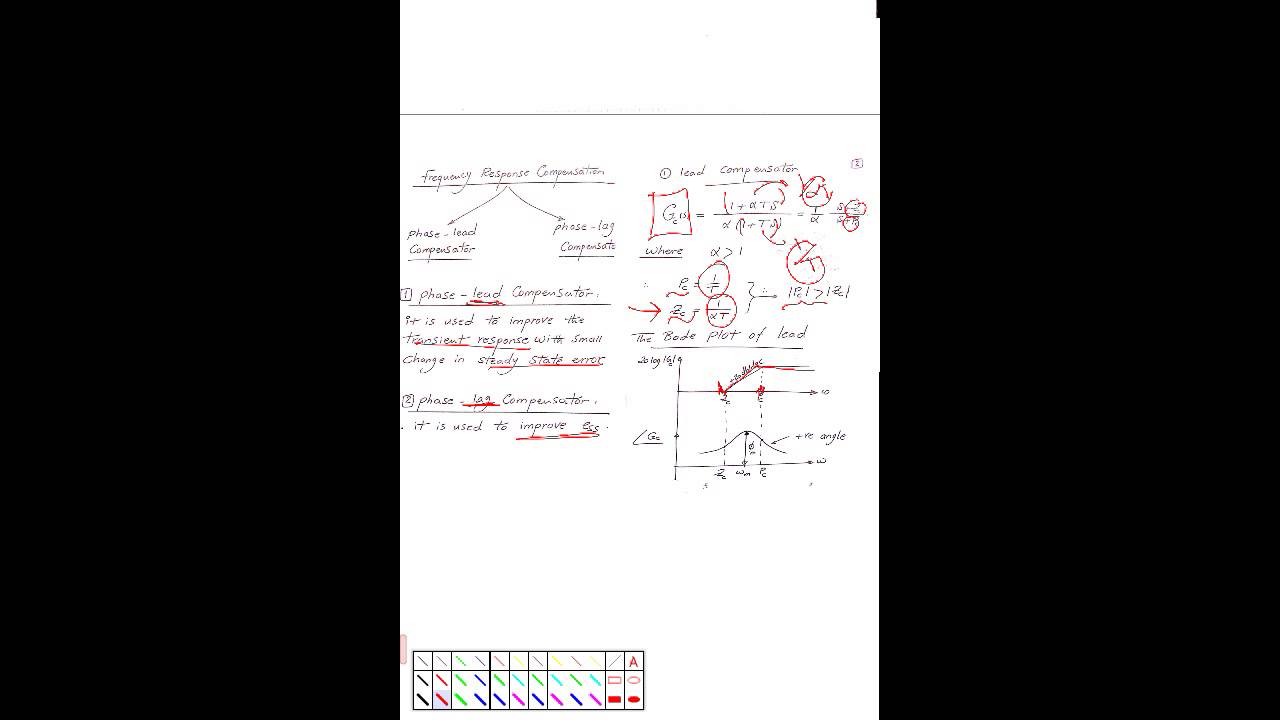 Frequency Response Compensation
phase-lead
Compensator
phase-lag
Compensate
1 phase-lead Compensator.
it is used to improve the
transient response with small
change in steady state error
2 phase-lag Compensator.
. it is used to improve ess.
2
① lead compensator
Gc(s) = (1+αTs) / α(1+Ts) = 1/α
where α > 1
∴ Pc = 1/T
Zc = 1/αT
∴ |Pc| > |Zc|
The Bode plot of lead
20 log |Gc|
Zc Pc ω
∠Gc
+ve angle
Zc ωm Pc ω
A